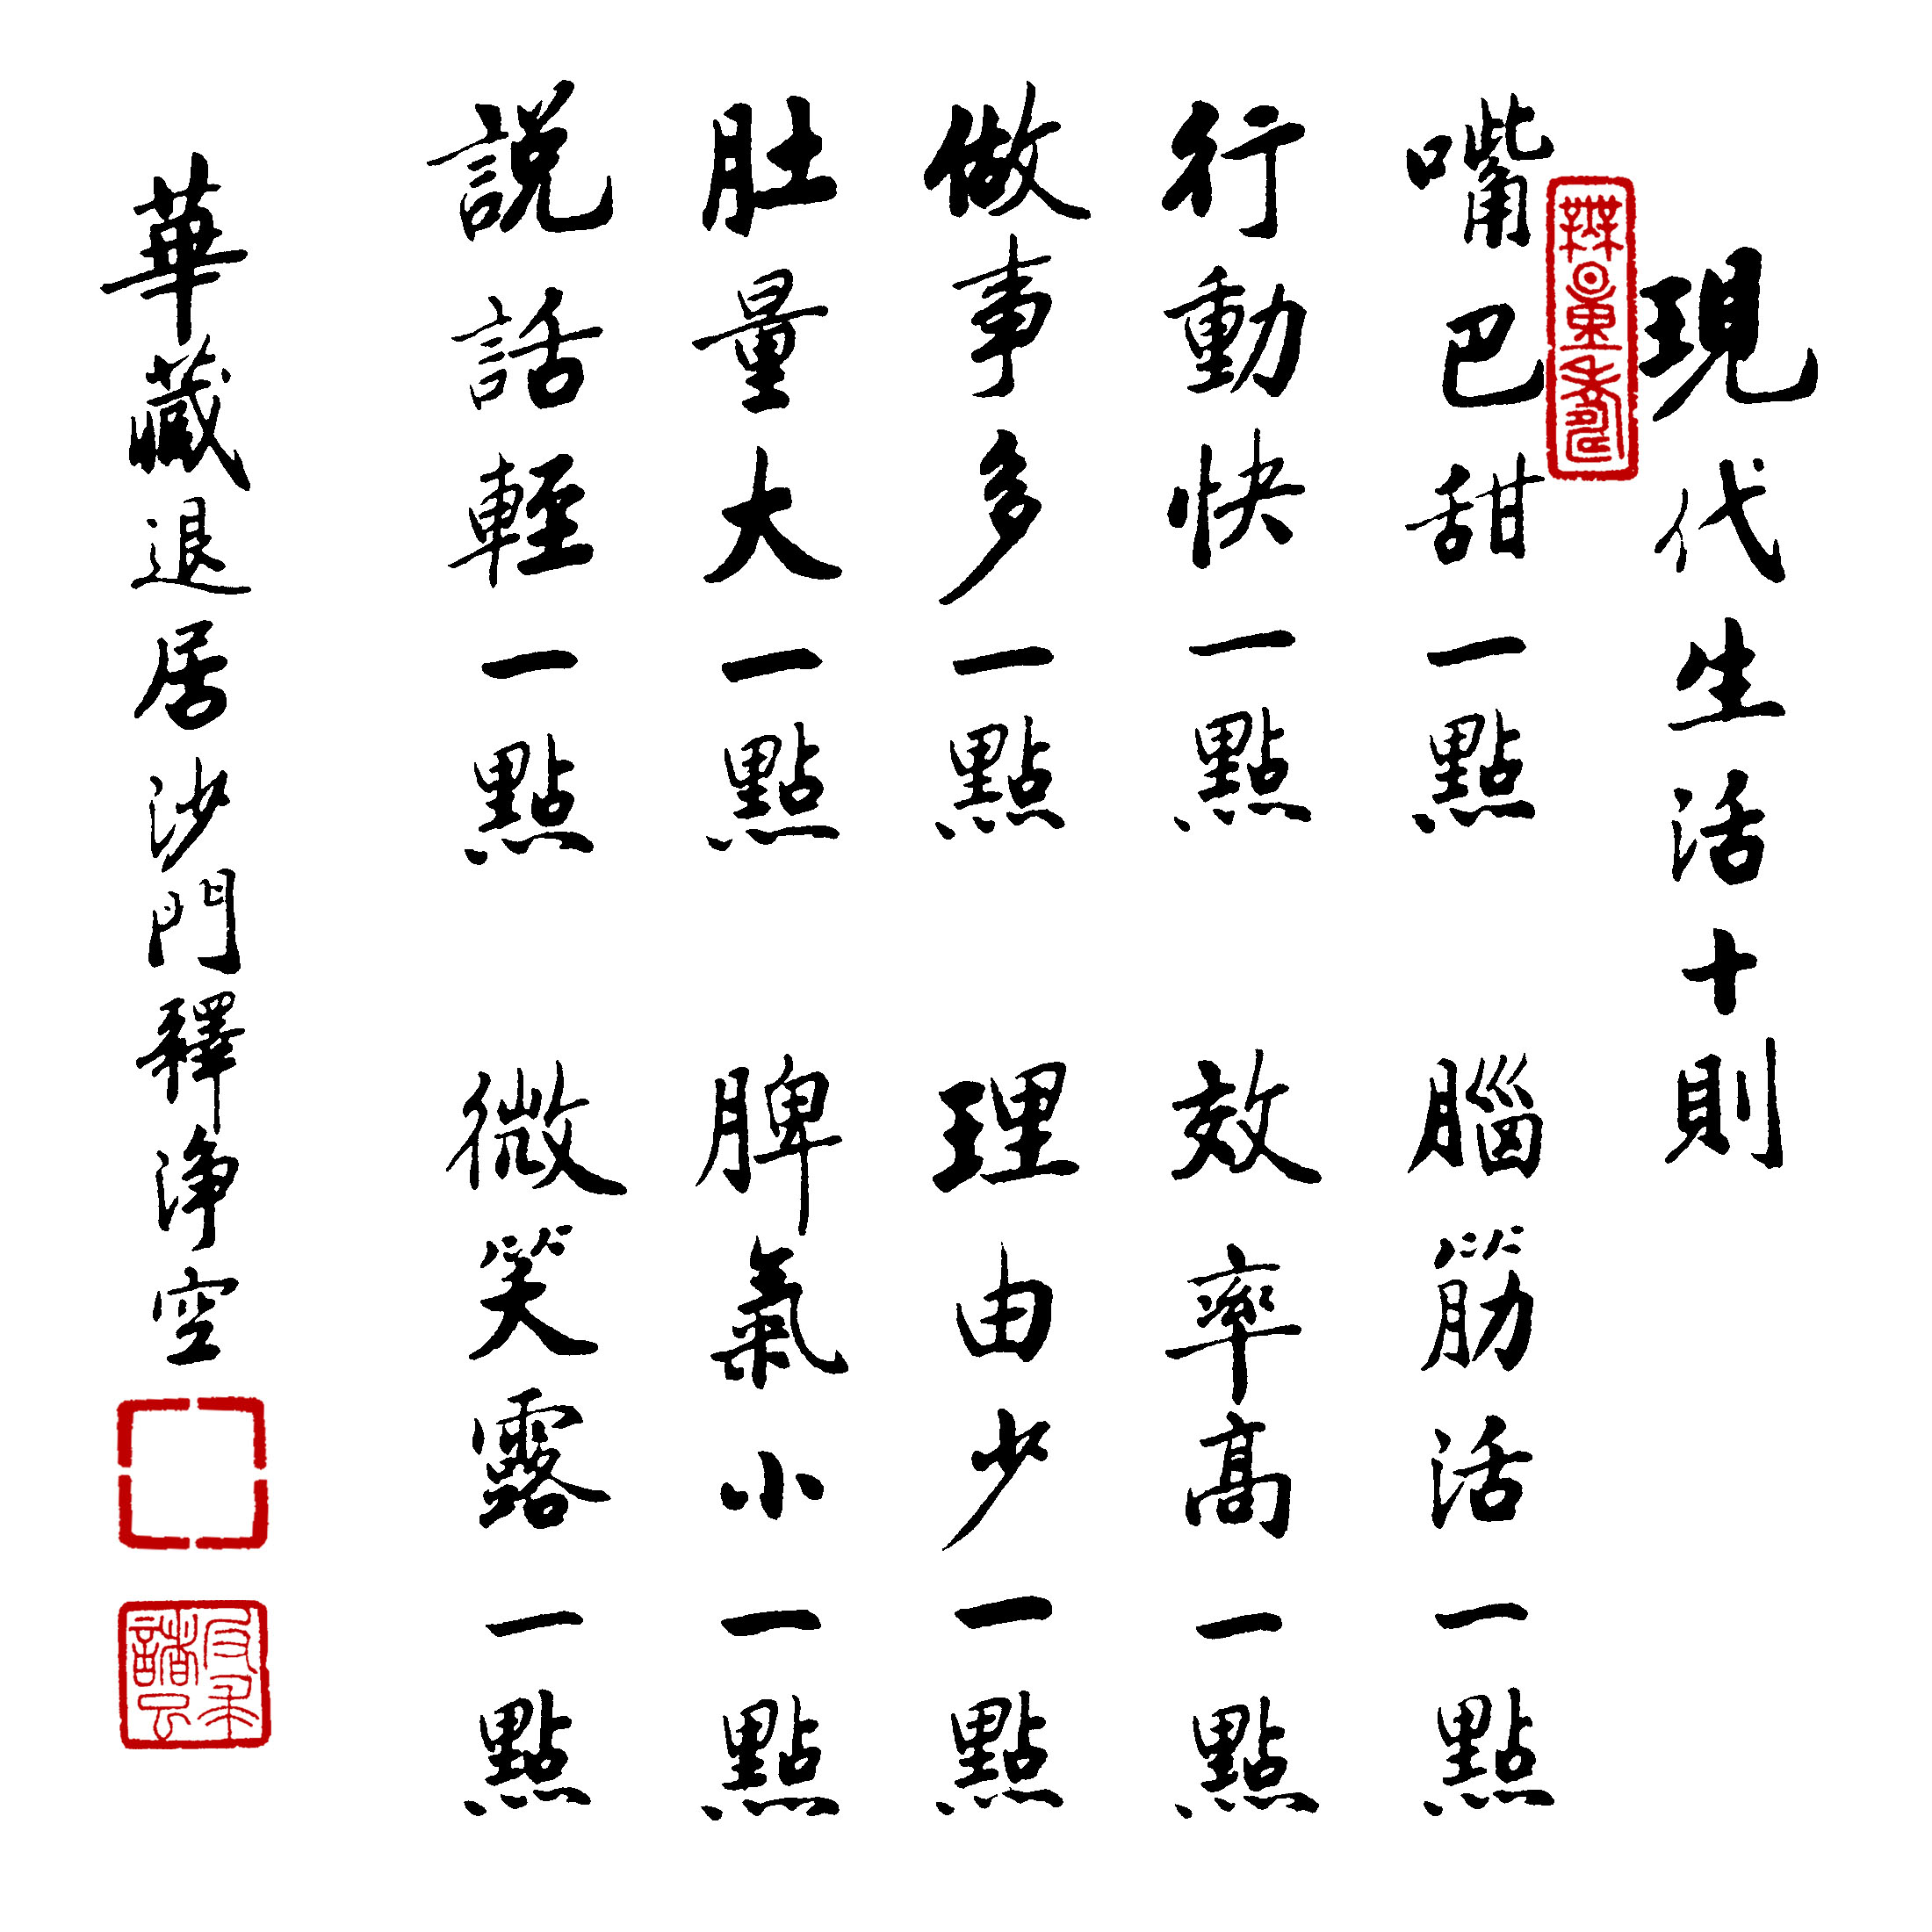 現代生活十則
嘴巴甜一點 腦筋活一點
行動快一點 效率高一點
做事多一點 理由少一點
肚量大一點 脾氣小一點
説話輕一點 微笑露一點
華藏退居沙門釋淨空
無量壽